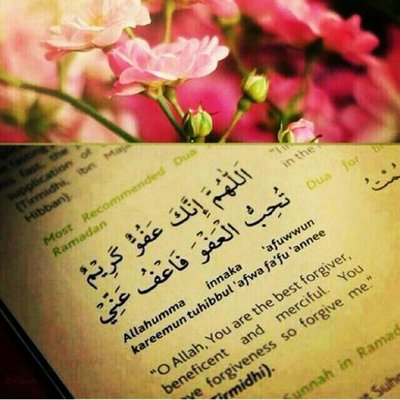 application of
(Tirmidhi, Ibn Maj
Hibban).
Most Recommended Dua in the
Ramadan
اَللّٰهُمَّ إِنَّكَ عَفُوٌّ كَرِيْمٌ
تُحِبُّ الْعَفْوَ فَاعْفُ عَنِّيْ
Allahumma innaka 'afuwwun
kareemun tuhibbul 'afwa fa'fu 'annee
"O Allah, You are the best forgiver,
beneficent and merciful. You
ve forgiveness so forgive me."
irmidhi).
Dua for
Sunnah in Ramada